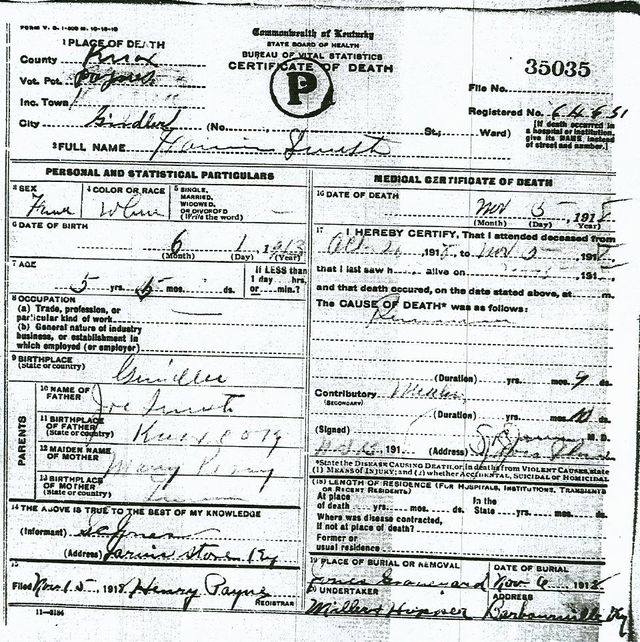 FORM V. S. 1-500 M. 10-16-18
Commonwealth of Kentucky
STATE BOARD OF HEALTH
BUREAU OF VITAL STATISTICS
CERTIFICATE OF DEATH
P
1 PLACE OF DEATH
County Knox
Vot. Pct. Payne
Inc. Town
City
(No. St.; Ward)
File No. 35035
Registered No. 64651
[If death occurred in a hospital or institution, give its NAME instead of street and number.]
2 FULL NAME Smith
PERSONAL AND STATISTICAL PARTICULARS
3 SEX
4 COLOR OR RACE White
5 SINGLE, MARRIED, WIDOWED, OR DIVORCED (Write the word)
6 DATE OF BIRTH
6 1, 1913
(Month) (Day) (Year)
7 AGE
5 yrs. 5 mos. ds.
If LESS than 1 day hrs. or min.?
8 OCCUPATION
(a) Trade, profession, or particular kind of work
(b) General nature of industry business, or establishment in which employed (or employer)
9 BIRTHPLACE
(State or country)
PARENTS
10 NAME OF FATHER Joe Smith
11 BIRTHPLACE OF FATHER (State or country) Knox Co
12 MAIDEN NAME OF MOTHER Mary
13 BIRTHPLACE OF MOTHER (State or country)
14 THE ABOVE IS TRUE TO THE BEST OF MY KNOWLEDGE
(Informant)
(Address) Jarvis Store Ky
15
Filed Nov. 15, 1918 Henry Payne
REGISTRAR
11-3184
MEDICAL CERTIFICATE OF DEATH
16 DATE OF DEATH
Nov 5, 1918
(Month) (Day) (Year)
17 I HEREBY CERTIFY, That I attended deceased from
, 1918, to Nov 5, 1918
that I last saw h alive on , 191
and that death occured, on the date stated above, at m.
The CAUSE OF DEATH* was as follows:
(Duration) yrs. mos. 9 ds.
Contributory
(SECONDARY)
(Duration) yrs. mos. 10 ds.
(Signed) M. D.
, 191 (Address)
*State the DISEASE CAUSING DEATH, or, in deaths from VIOLENT CAUSES, state (1) MEANS OF INJURY; and (2) whether ACCIDENTAL, SUICIDAL or HOMICIDAL
(18) LENGTH OF RESIDENCE (FOR HOSPITALS, INSTITUTIONS, TRANSIENTS OR RECENT RESIDENTS)
At place of death yrs. mos. ds. In the State yrs. mos. ds.
Where was disease contracted, if not at place of death?
Former or usual residence
19 PLACE OF BURIAL OR REMOVAL
Jones Graveyard
DATE OF BURIAL
Nov 6, 1918
20 UNDERTAKER
Miller Hopper
ADDRESS
Barbourville Ky